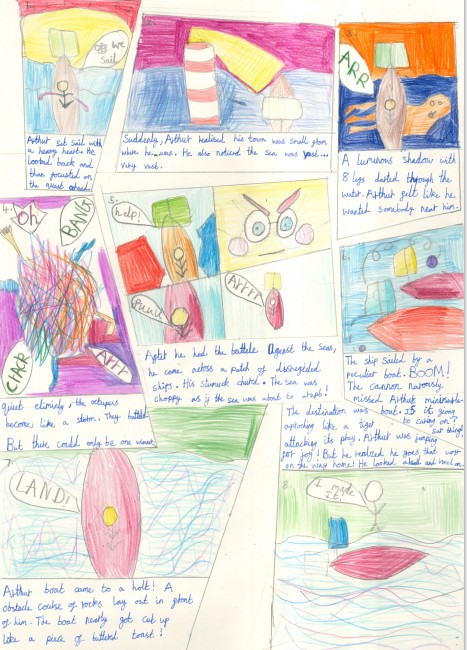 off we
Sail
Arthur set sail with
a heavy heart. He
looked back and
than focused on
the quest ahead.
Suddenly, Arthur realised his town was small from
where he was. He also noticed the sea was vast...
very vast.
ARR
A luminous shadow with
8 legs darted through the
water. Arthur felt like he
wanted somebody near him.
4.
Oh
BANG
ARFF
quiet
the octupus
become like a storm. They battled
But there could only be one winner
5.
help!
Arrrr
After he had the battele against the seas,
he came across a patch of
ships. His stumuck churd. The sea was
choppy as if the sea was about to
6.
The ship sailed by a
peculiar boat. BOOM!
The cannon narowly
missed Arthur
boat. Is it going
to carry on?
The destination was
aptoching like a tiger
attacking its pray. Arthur was jumping
for joy! But he realized he goes that way
on the way home! He looked ahead and
7.
LAND!
Arthur boat came to a holt! A
obstacle course of rocks lay out in front
of him. The boat nearly got cut up
like a piece of buttered toast!
8.
I made
it!